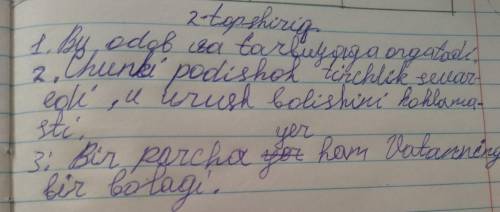 2-topshiriq.
1. Bu odob va tarbuyaga orgatadi.
2. Chunki podishoh tinchlik suvar-
edi, u urush bolishini hohlama-
sti.
yer
3: Bir parcha yer ham Vatanning
bir bolagi.